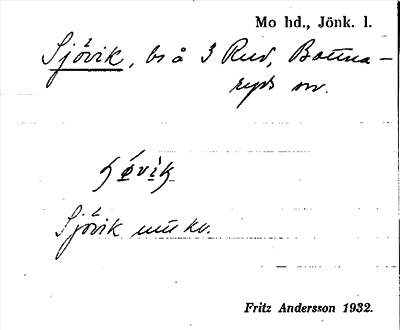 Mo hd., Jönk. l.
Sjövik, bs å 3 Rud, Bottna-
ryds sn.
Sjövik
Fritz Andersson 1932.